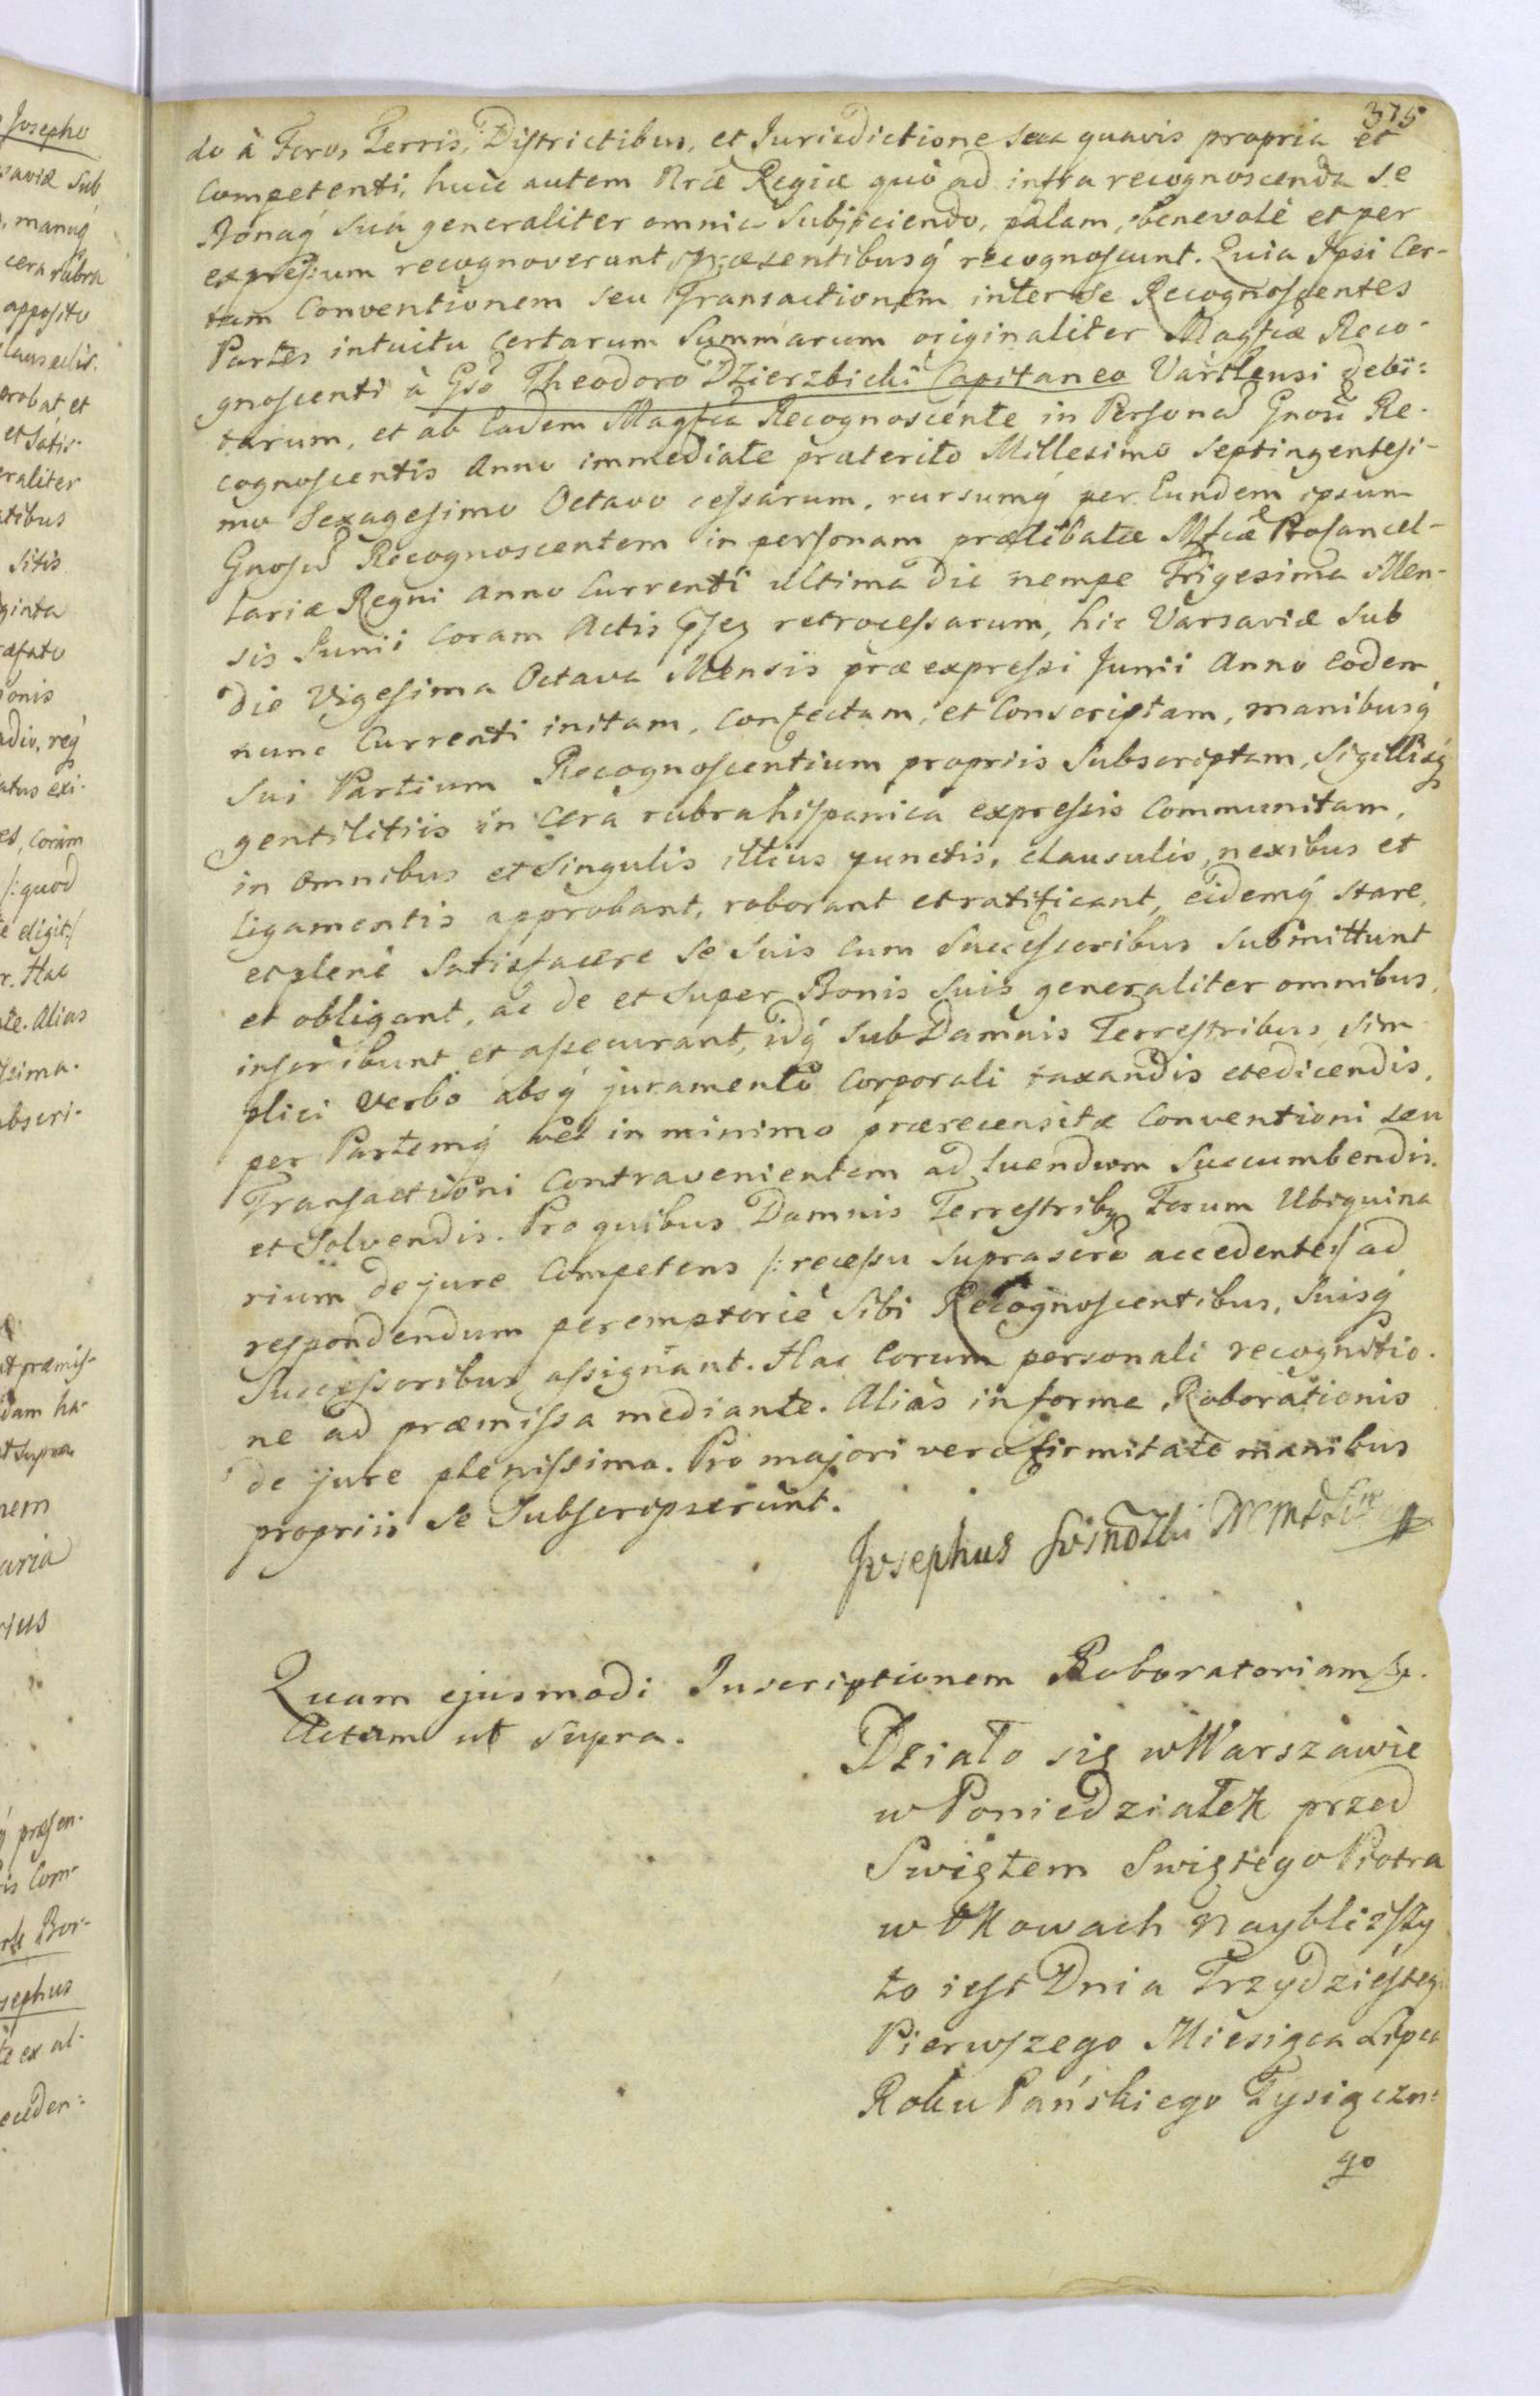 375
do à Foro, Terris, Districtibus, et Jurisdictione sua quavis propria et
Competenti, huic autem Rræ Regiæ quò ad infra recognoscenda se
Bonaq́ suá generaliter omnia Subjiciendo, palam, benevolè et per
expressum recognoverunt, præsentibusq́ recognoscunt. Quia Ipsi Cer-
tam Conventionem seu Transactionem inter se Recognoscentes
Partes intuitu Certarum Summarum originaliter Magfcæ Reco-
gnoscenti à Gso Theodoro Dzierzbicki Capitaneo Vartensi debi:
tarum, et ab Eadem Magfca Recognoscente in Persona Gnosi Re-
cognoscentis Anno immediate præterito Millesimo Septingentesi-
mo Sexagesimo Octavo cessarum, rursumq́ per Eundem ipsum
Gnosu Recognoscentem in personam prælibatæ Mfcæ Procancel-
lariæ Regni Anno Currenti ultima die nempe Trigesima Men-
sis Junii Coram Actis retrocessarum, hic Varsaviæ sub
die Vigesima Octava Mensis præexpressi Junii Anno Eodem
nunc Currenti initam, Confectam, et Conscriptam, manibusq́
Sui Partium Recognoscentium propriis Subscriptam, Sigillisq́
gentilitiis in Cera rubra hispanica expressis Communitam,
in Omnibus et Singulis illius punctis, clausulis, nexibus et
Ligamentis approbant, roborant et ratificant, eidemq́ stare,
et plenè Satisfacere se Suis Cum Successoribus submittunt
et obligant, ac de et super Bonis Suis generaliter omnibus,
inscribunt et assecurant, idq́ sub Damnis Terrestribus, sim-
plici Verbo absq́ juramento Corporali taxandis et edicendis,
per Partemq́ vel in minimo prærecensitæ Conventioni seu
Transactioni Contravenientem ad luendum Succumbendis.
et Solvendis. Pro quibus Damnis Terrestribꝫ Forum Ubiquina
rium de jure Competens /: recessu suprascro accedente :/ ad
respondendum peremptorie Sibi Recognoscentibus, Suisq́
Successoribus assignant. Hac Eorum personali recognitio-
ne ad præmissa mediante. Alias in forma Roborationis
de jure plenissima. Pro majori vero firmitate manibus
propriis se Subscripserunt.
Josephus
Quam ejusmodi Inscriptionem Roboratoriam
Actum ut supra.
Działo się w Warszawie
w Poniedziałek przed
Swiętem Swiętego Piotra
w Okowach Naybliższy
to iest Dnia Trzydziesteg
Pierwszego Miesiąca Lipca
Roku Pańskiego Tysiączne:
go